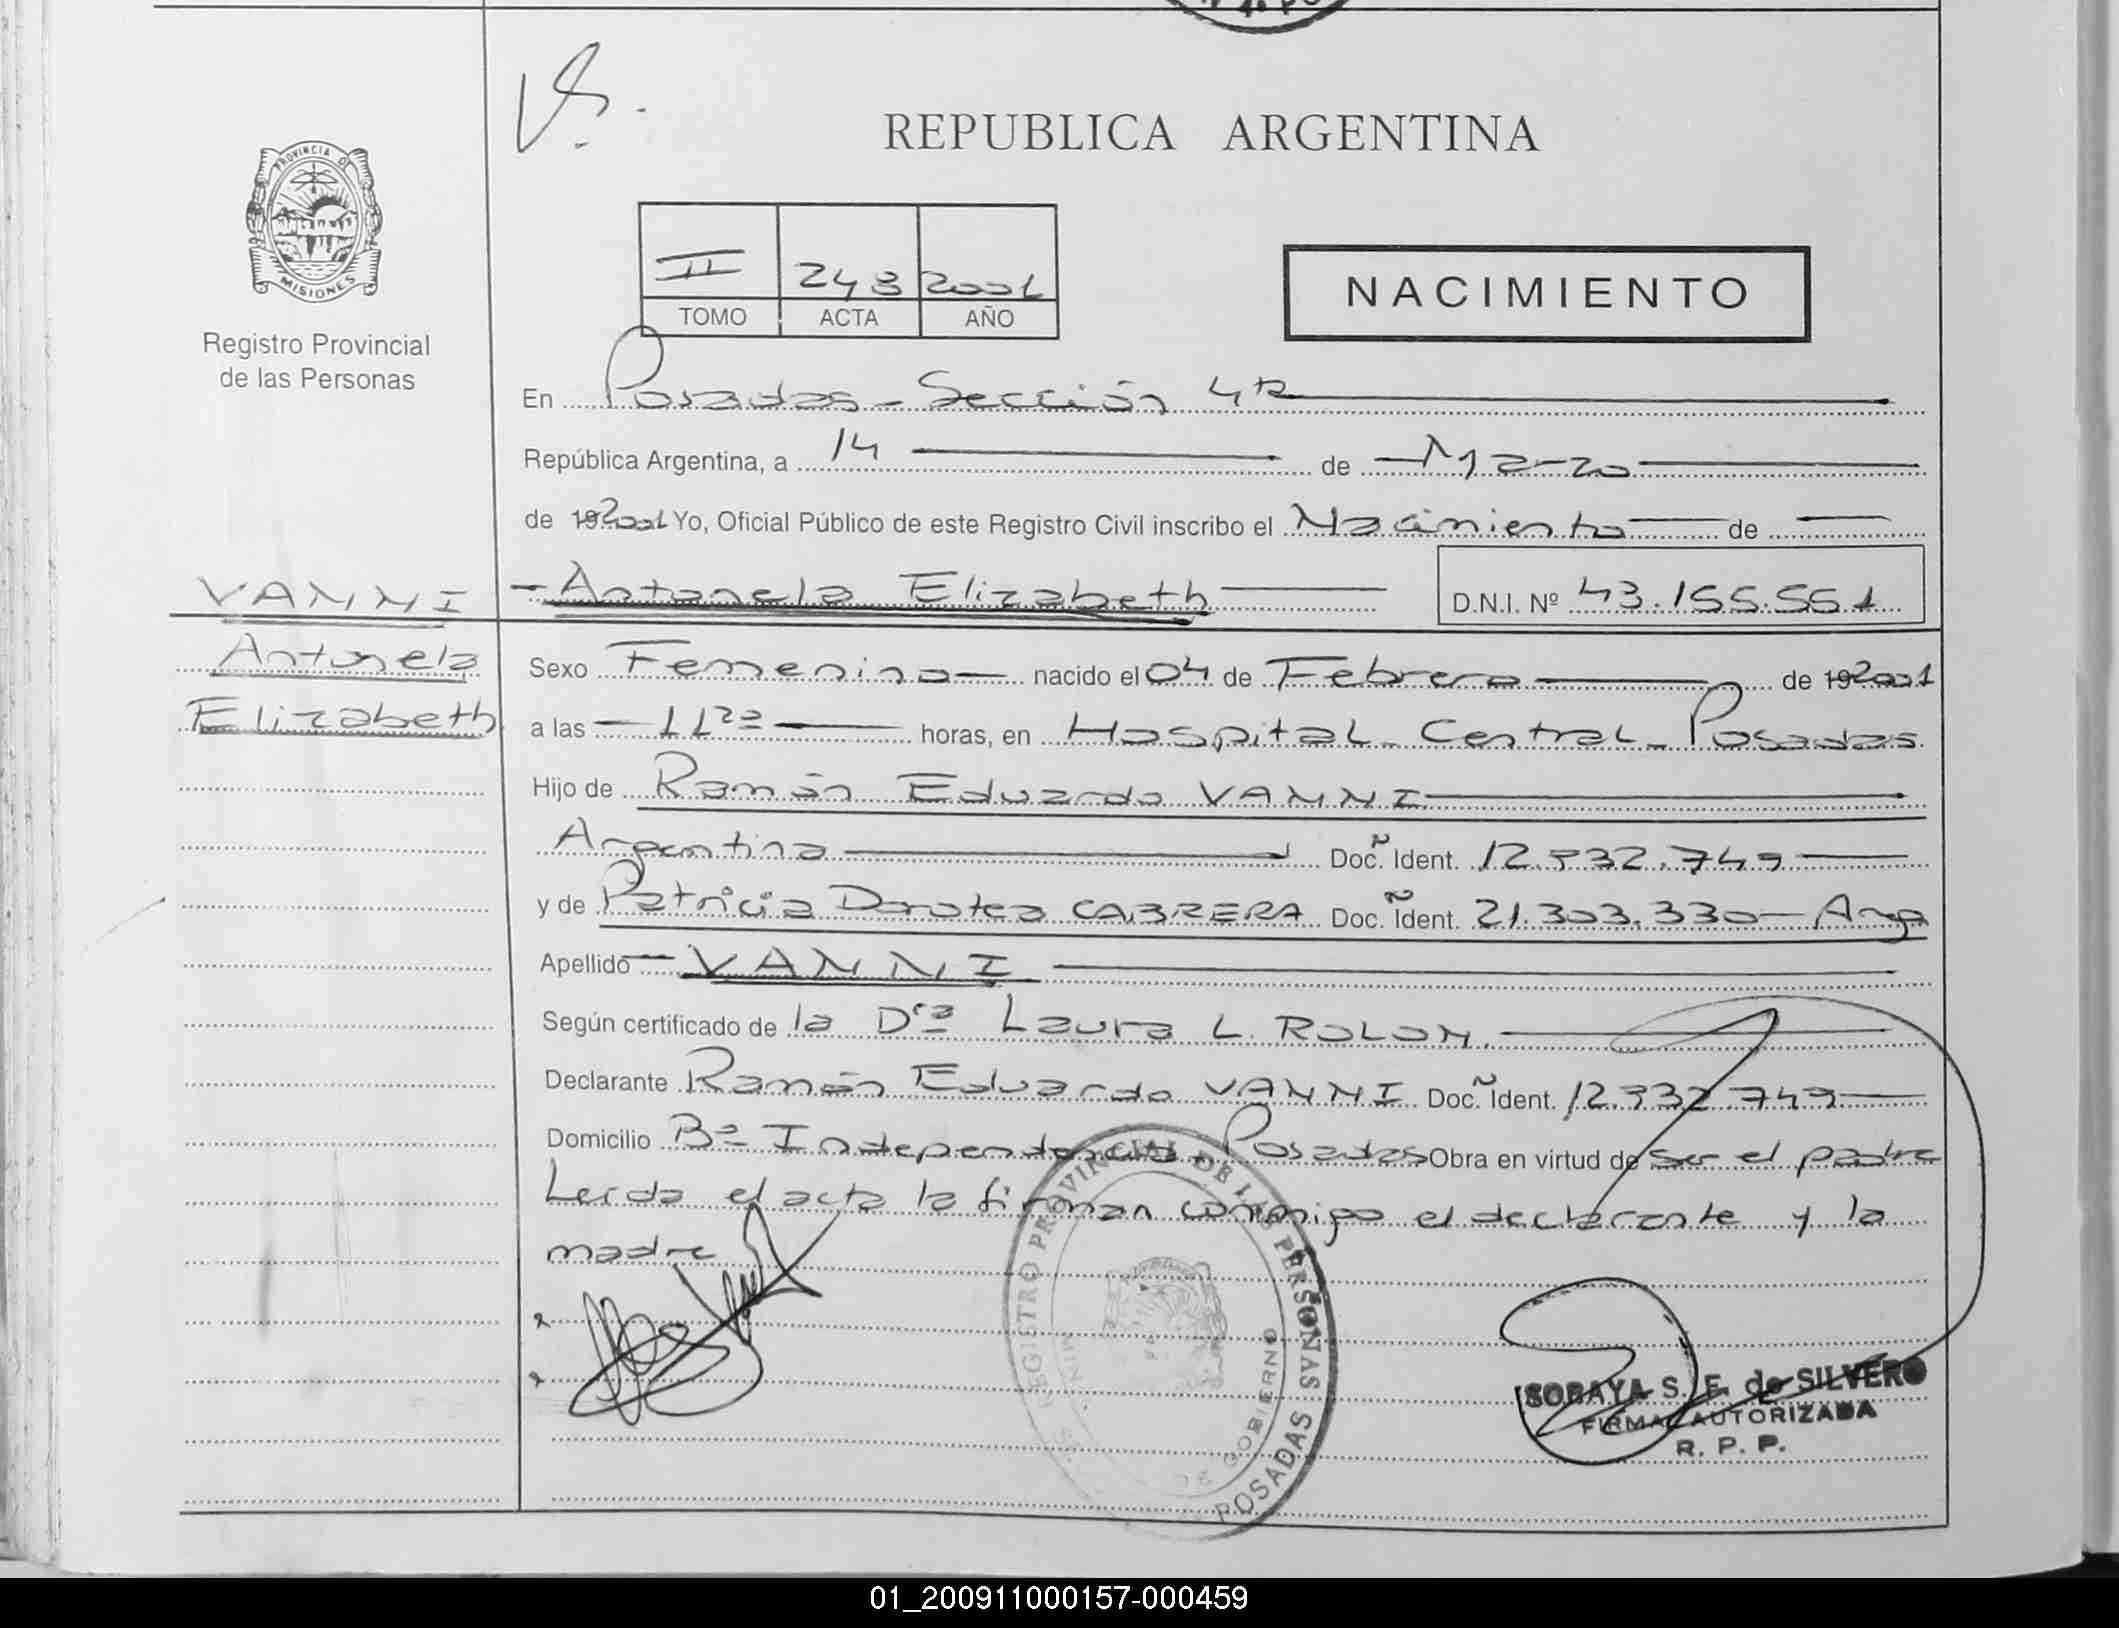 REPUBLICA ARGENTINA
PROVINCIA DE
MISIONES
Registro Provincial
de las Personas
II 243 2001
TOMO ACTA AÑO
NACIMIENTO
En Posadas - Sección 4ta
República Argentina, a 14 de Marzo
de 19 2001 Yo, Oficial Público de este Registro Civil inscribo el Nacimiento de
VANNI
Antonela
Elizabeth
- Antonela Elizabeth
D.N.I. Nº 43.155.551
Sexo Femenino nacido el 04 de Febrero de 19 2001
a las 11 horas, en Hospital Central - Posadas
Hijo de Ramón Eduardo VANNI
Argentina Doc. Ident.
y de Patricia Dorotea CABRERA Doc. Ident. 21.303.330 - Arga
Apellido VANNI
Según certificado de la Dra Laura L. ROLON.
Declarante Ramón Eduardo VANNI Doc. Ident.
Domicilio Bº Independencia - Posadas Obra en virtud de ser el padre
Leída el acta la firman conmigo el declarante y la
madre
REGISTRO PROVINCIAL DE LAS PERSONAS
DE GOBIERNO
POSADAS
SORAYA S. E. de SILVERO
FIRMA AUTORIZADA
R. P. P.
01_200911000157-000459